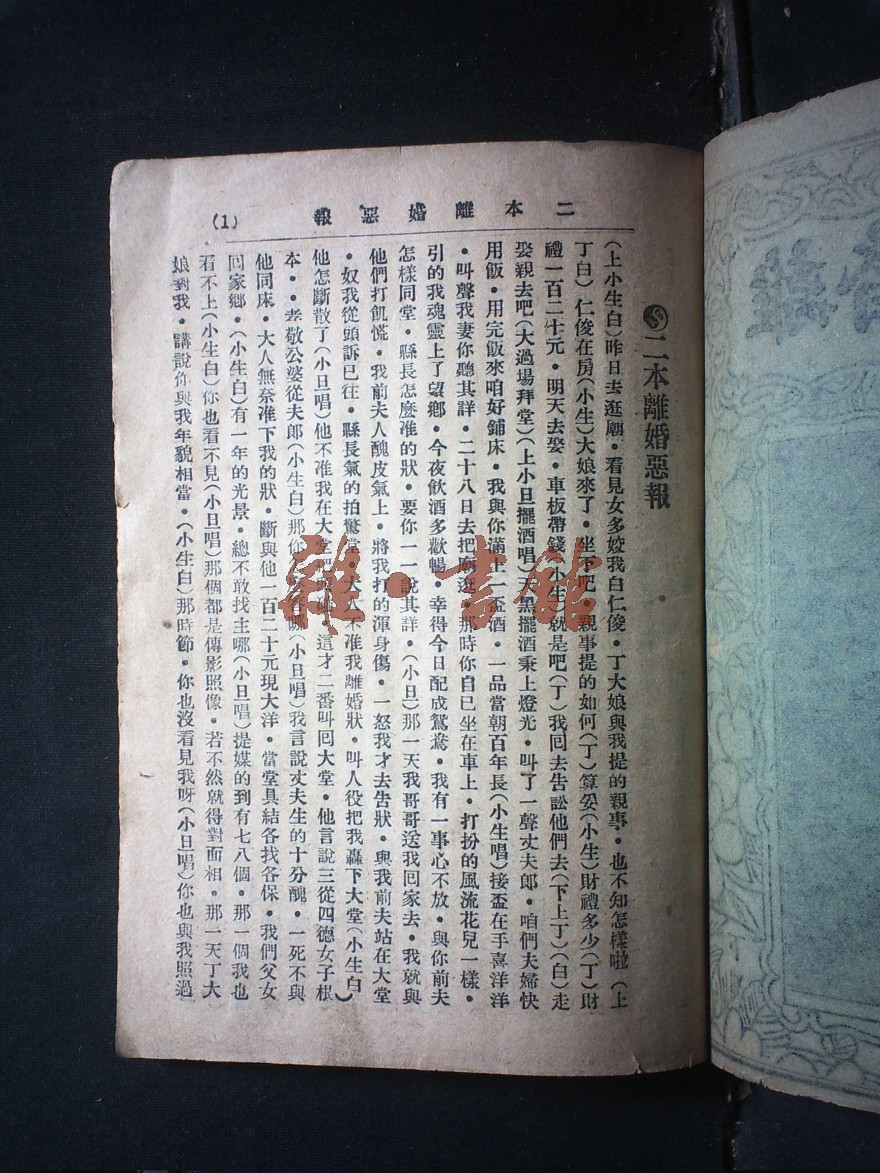 二本離婚惡報
(1)
二本離婚惡報
(上小生白)昨日去逛廟•看見女多姣我白仁俊•丁大娘與我提的親事•也不知怎樣啦(上
丁白)仁俊在房(小生)大娘來了•坐下吧•親事提的如何(丁)算妥(小生)財禮多少(丁)財
禮一百二十元•明天去娶•車板帶錢(小生)就是吧(丁)我回去告訟他們去(下上丁)(白)走
娶親去吧(大過場拜堂)(上小旦擺酒唱)天黑擺酒秉上燈光•叫了一聲丈夫郎•咱們夫婦快
用飯•用完飯來咱好鋪床•我與你滿上一盃酒•一品當朝百年長(小生唱)接盃在手喜洋洋
•叫聲我妻你聽其詳•二十八日去把廟逛•那時你自已坐在車上•打扮的風流花兒一樣•
引的我魂靈上了望鄉•今夜飲酒多歡暢•幸得今日配成鴛鴦•我有一事心不放•與你前夫
怎樣同堂•縣長怎麼准的狀•要你一一說其詳•(小旦)那一天我哥哥送我回家去•我就與
他們打飢慌•我前夫人醜皮氣上•將我打的渾身傷•一怒我才去告狀•與我前夫站在大堂
•奴我從頭訴已往•縣長氣的拍驚堂•大人不准我離婚狀•叫人役把我轟下大堂(小生白)
他怎斷散了(小旦唱)他不准我在大堂這才二番叫回大堂•他言說三從四德女子根
本••孝敬公婆從夫郎(小生白)那你哪(小旦唱)我言說丈夫生的十分醜•一死不與
他同床•大人無奈准下我的狀•斷與他一百二十元現大洋•當堂具結各找各保•我們父女
回家鄉•(小生白)有一年的光景•總不敢找主哪(小旦唱)提媒的到有七八個•那一個我也
看不上(小生白)你也看不見(小旦唱)那個都是傳影照像•若不然就得對面相•那一天丁大
娘對我•講說你與我年貌相當•(小生白)那時節•你也沒看見我呀(小旦唱)你也與我照過
雜•書館